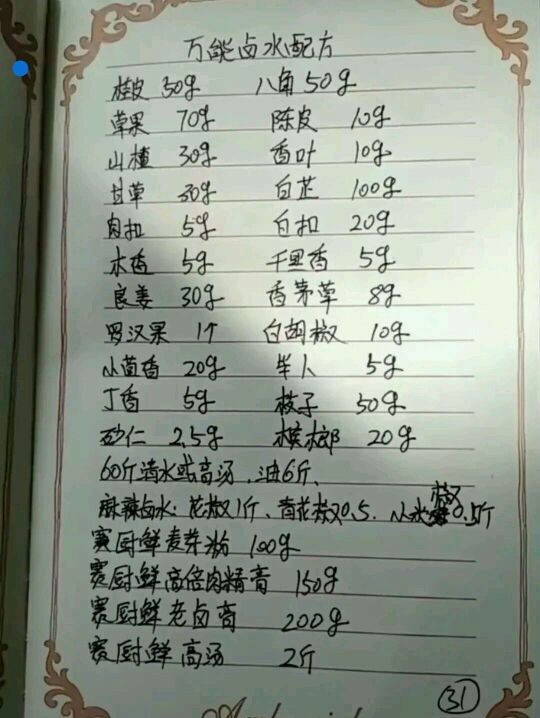 万能卤水配方
桂皮 30g 八角 50g
草果 70g 陈皮 10g
山楂 30g 香叶 10g
甘草 30g 白芷 100g
肉扣 5g 白扣 20g
木香 5g 千里香 5g
良姜 30g 香茅草 8g
罗汉果 1个 白胡椒 10g
小茴香 20g 毕卜 5g
丁香 5g 枝子 50g
砂仁 2.5g 槟榔 20g
60斤清水或高汤、油6斤、
麻辣卤水:花椒1斤、青花椒0.5、小米椒0.5斤
赛厨鲜麦芽粉 100g
赛厨鲜高倍肉精膏 150g
赛厨鲜老卤膏 200g
赛厨鲜高汤 2斤
31